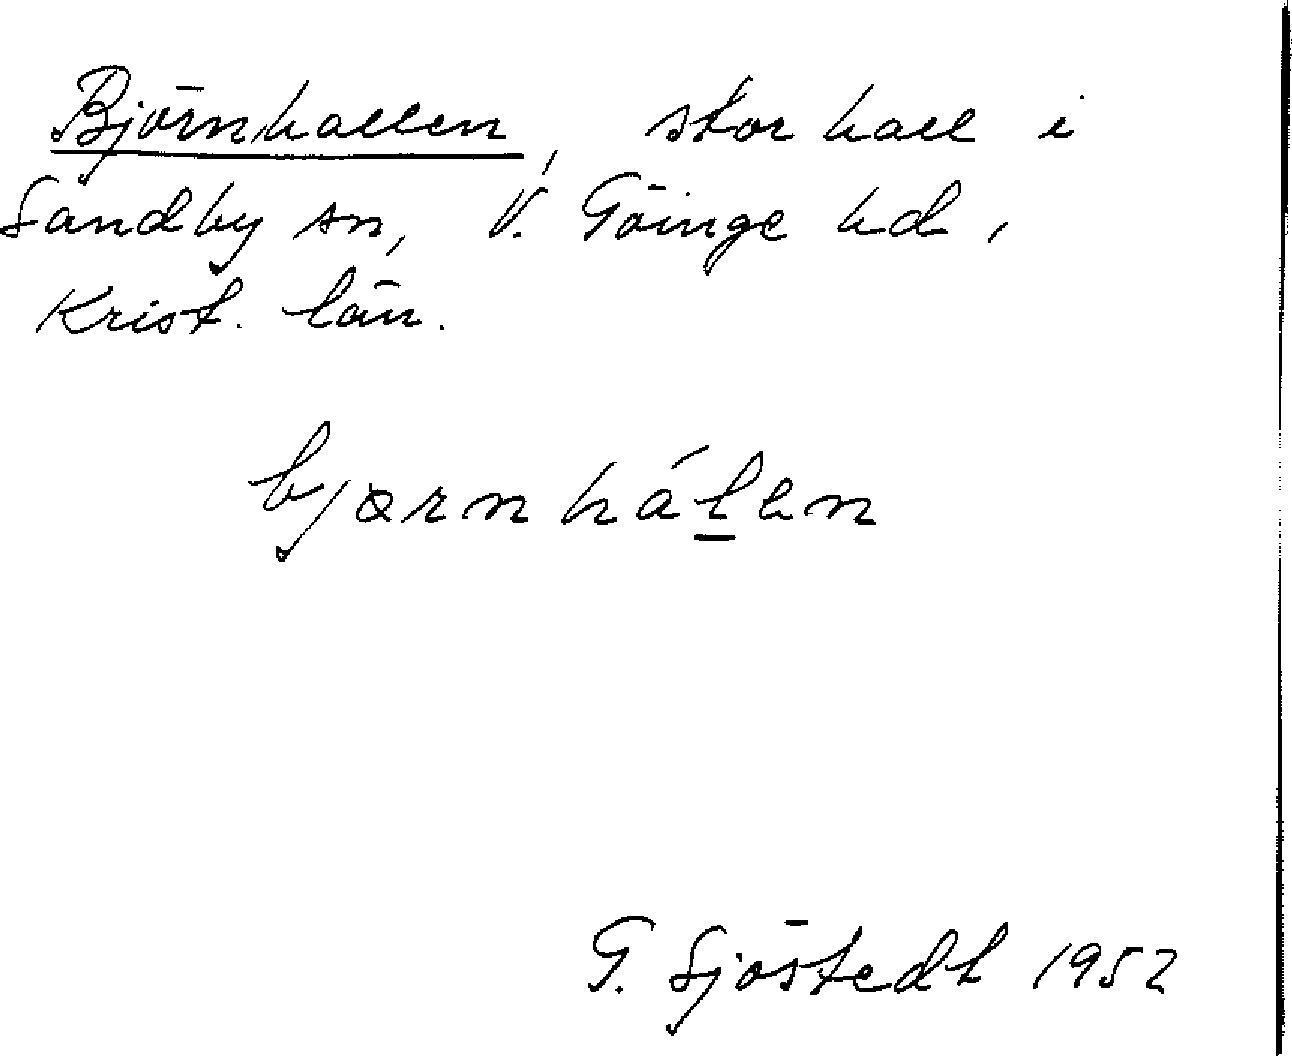 Björnhallen, stor hall i
Sandby sn, V. Göinge hd,
Krist. län.
bjørnhálen
G. Sjöstedt 1952